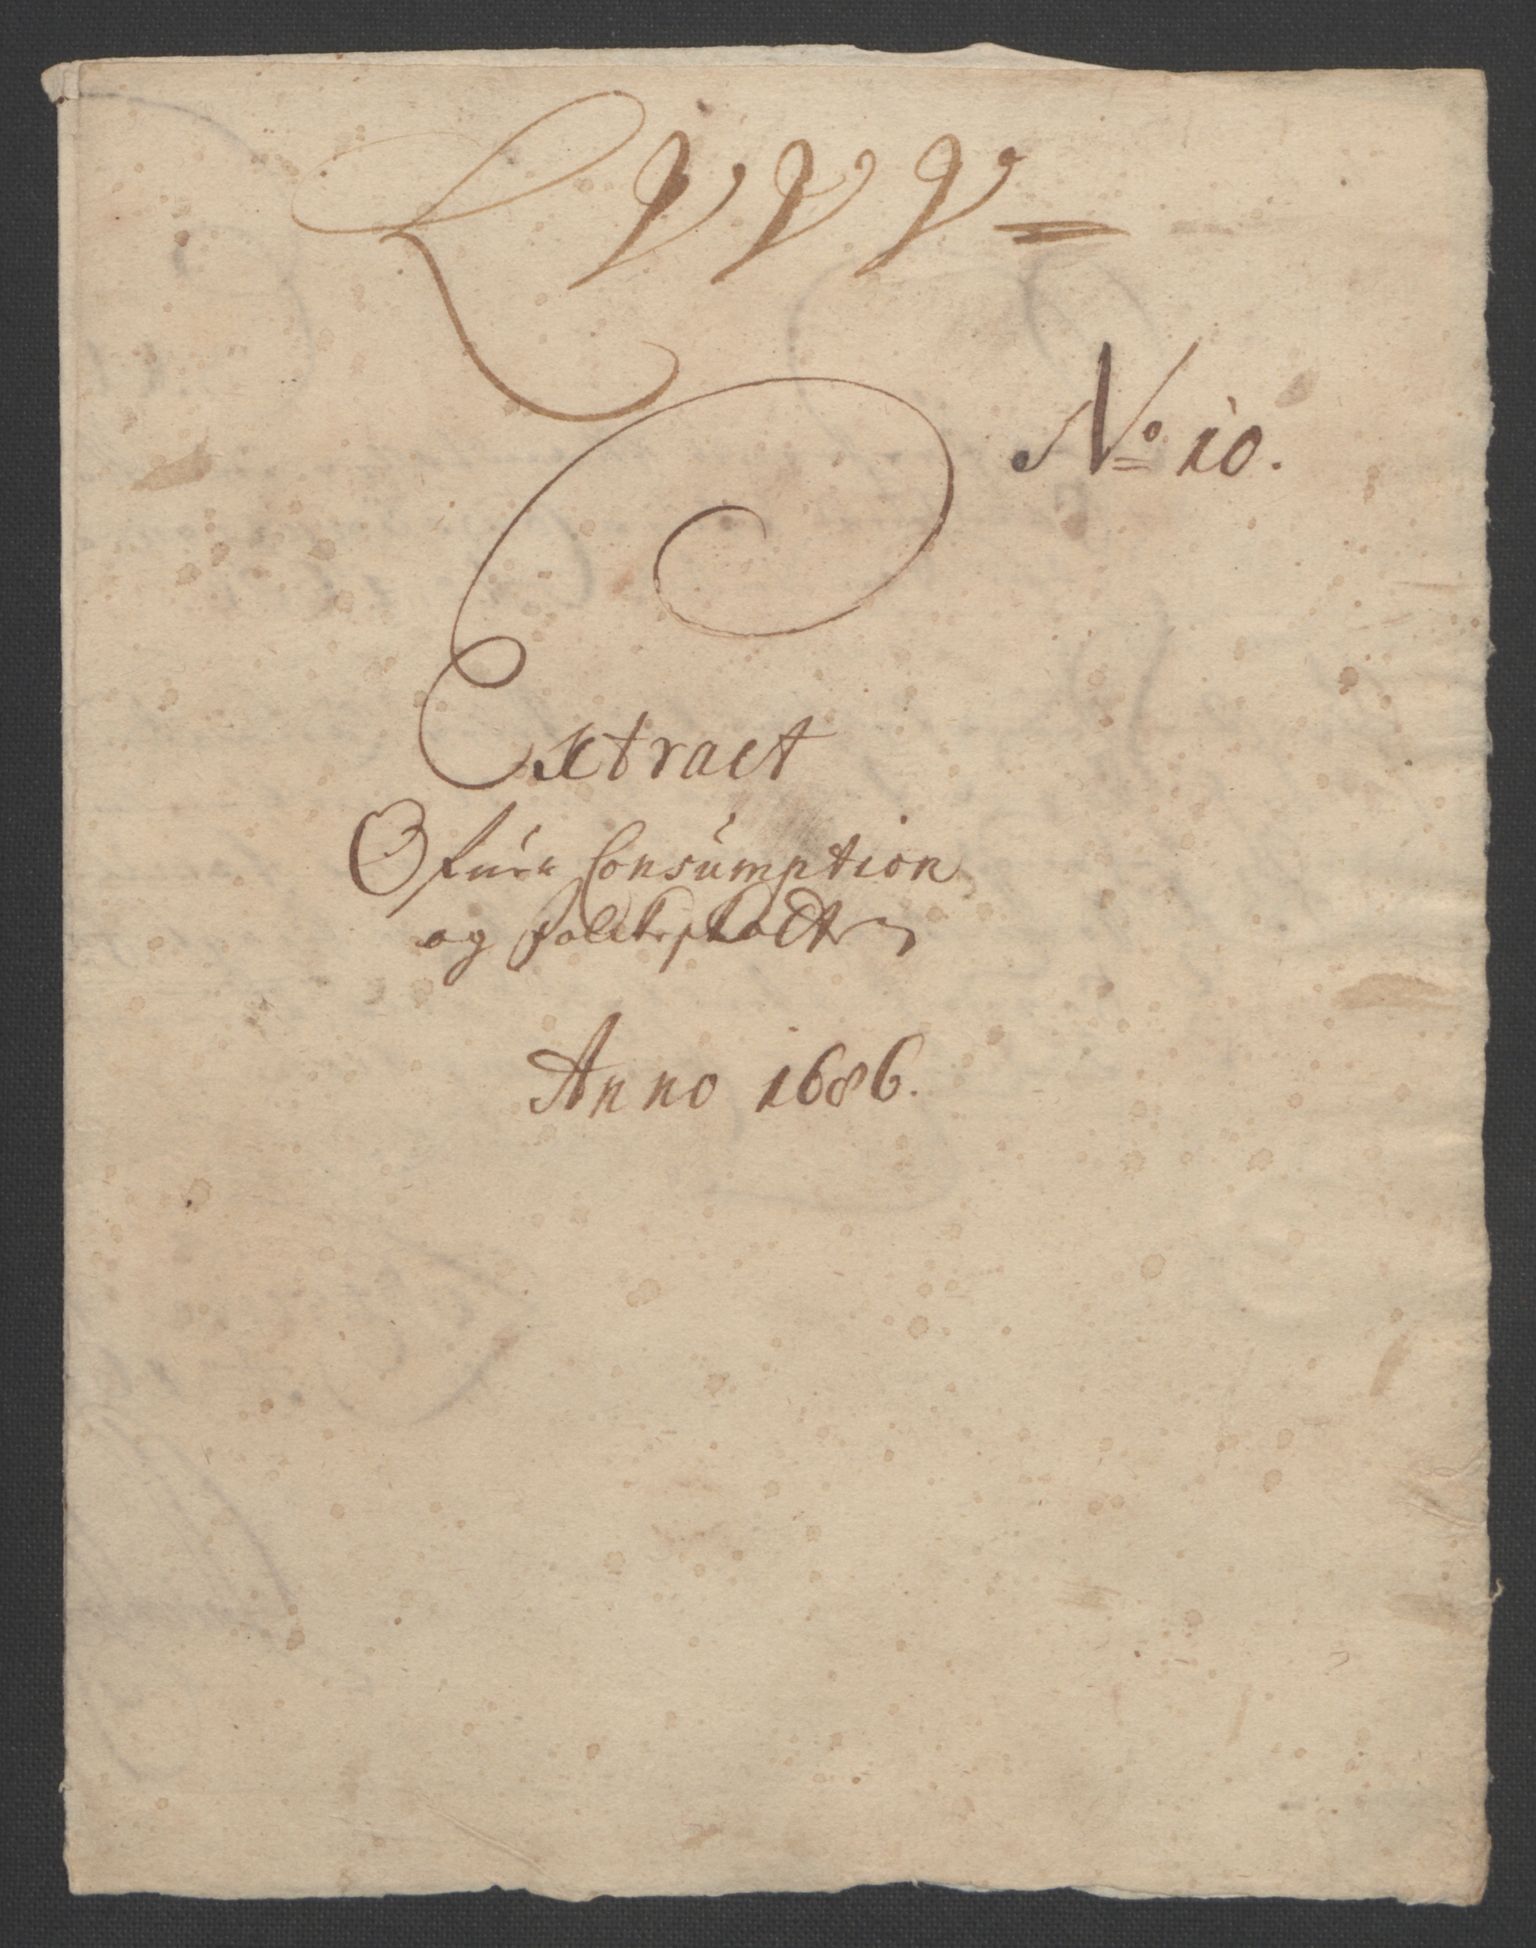 No 10.
Extract
Ofuer Consumption
og folcheskatt
Anno 1686.